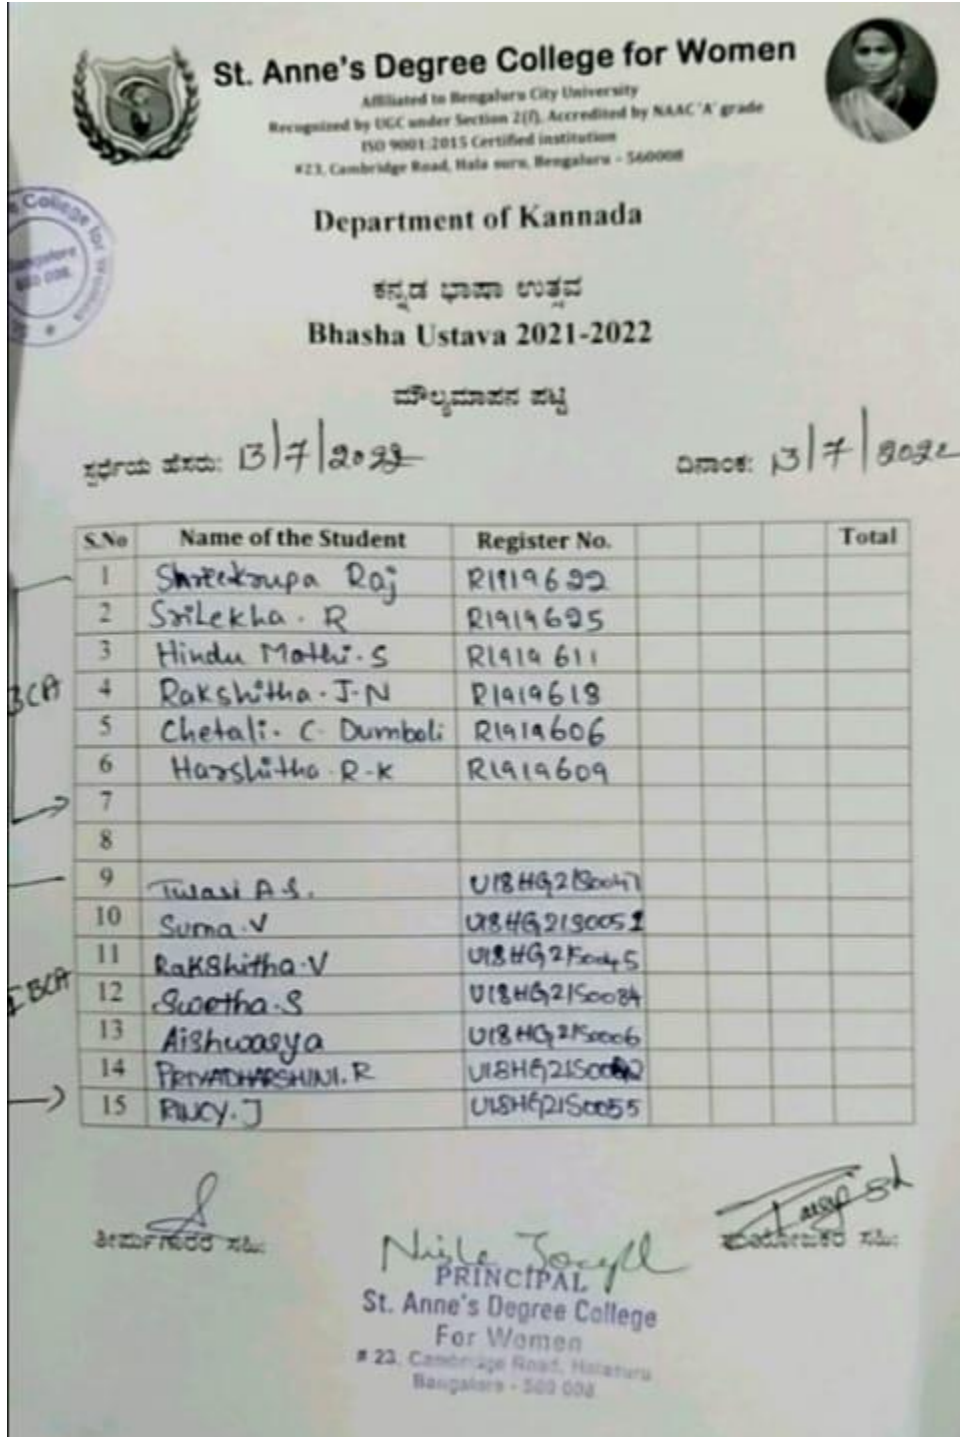 St. Anne's Degree College for Women
Affiliated to Bengaluru City University
Recognized by UGC under Section 2(f), Accredited by NAAC 'A' grade
ISO 9001:2015 Certified institution
#23, Cambridge Road, Hala suru, Bengaluru - 560008
College for Women
Bangalore
560 008
Department of Kannada
ಕನ್ನಡ ಭಾಷಾ ಉತ್ಸವ
Bhasha Ustava 2021-2022
ಮೌಲ್ಯಮಾಪನ ಪಟ್ಟಿ
ಸ್ಪರ್ಧೆಯ ಹೆಸರು: 13/7/2022 ದಿನಾಂಕ: 13/7/2022
S.No Name of the Student Register No. Total
1 Shreekrupa Raj R1919622
2 SriLekha . R R1919625
3 Hindu Mathi . S R1919611
BCA
4 Rakshitha . J-N R1919618
5 Chetali . C Dumboli R1919606
6 Harshitha R-K R1919609
7
8
9 Tulasi A.S. U18HG21S0047
10 Suma.V U18HG21S0051
11 RakShitha.V U18HG21S0045
I BCA
12 Swetha.S U18HG21S0084
13 Aishwarya U18HG21S0006
14 PRIYADHARSHINI.R U18HG21S00
15 RINCY.J U18HG21S0055
ತೀರ್ಪುಗಾರರ ಸಹಿ: ಸಂಯೋಜಕರ ಸಹಿ:
PRINCIPAL
St. Anne's Degree College
For Women
# 23, Cambridge Road, Halasuru
Bangalore - 560 008